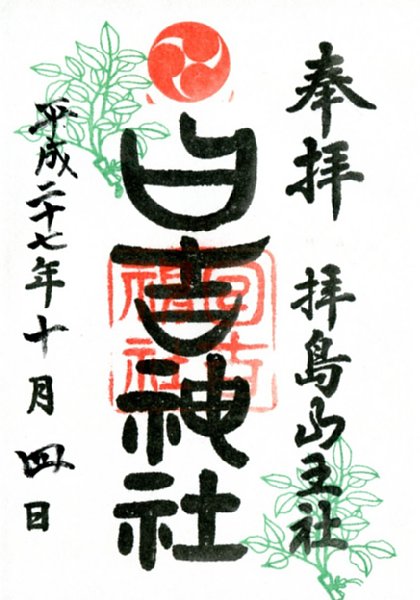 奉拝
拝島山王社
日吉神社
平成二十七年十月四日
日吉神社